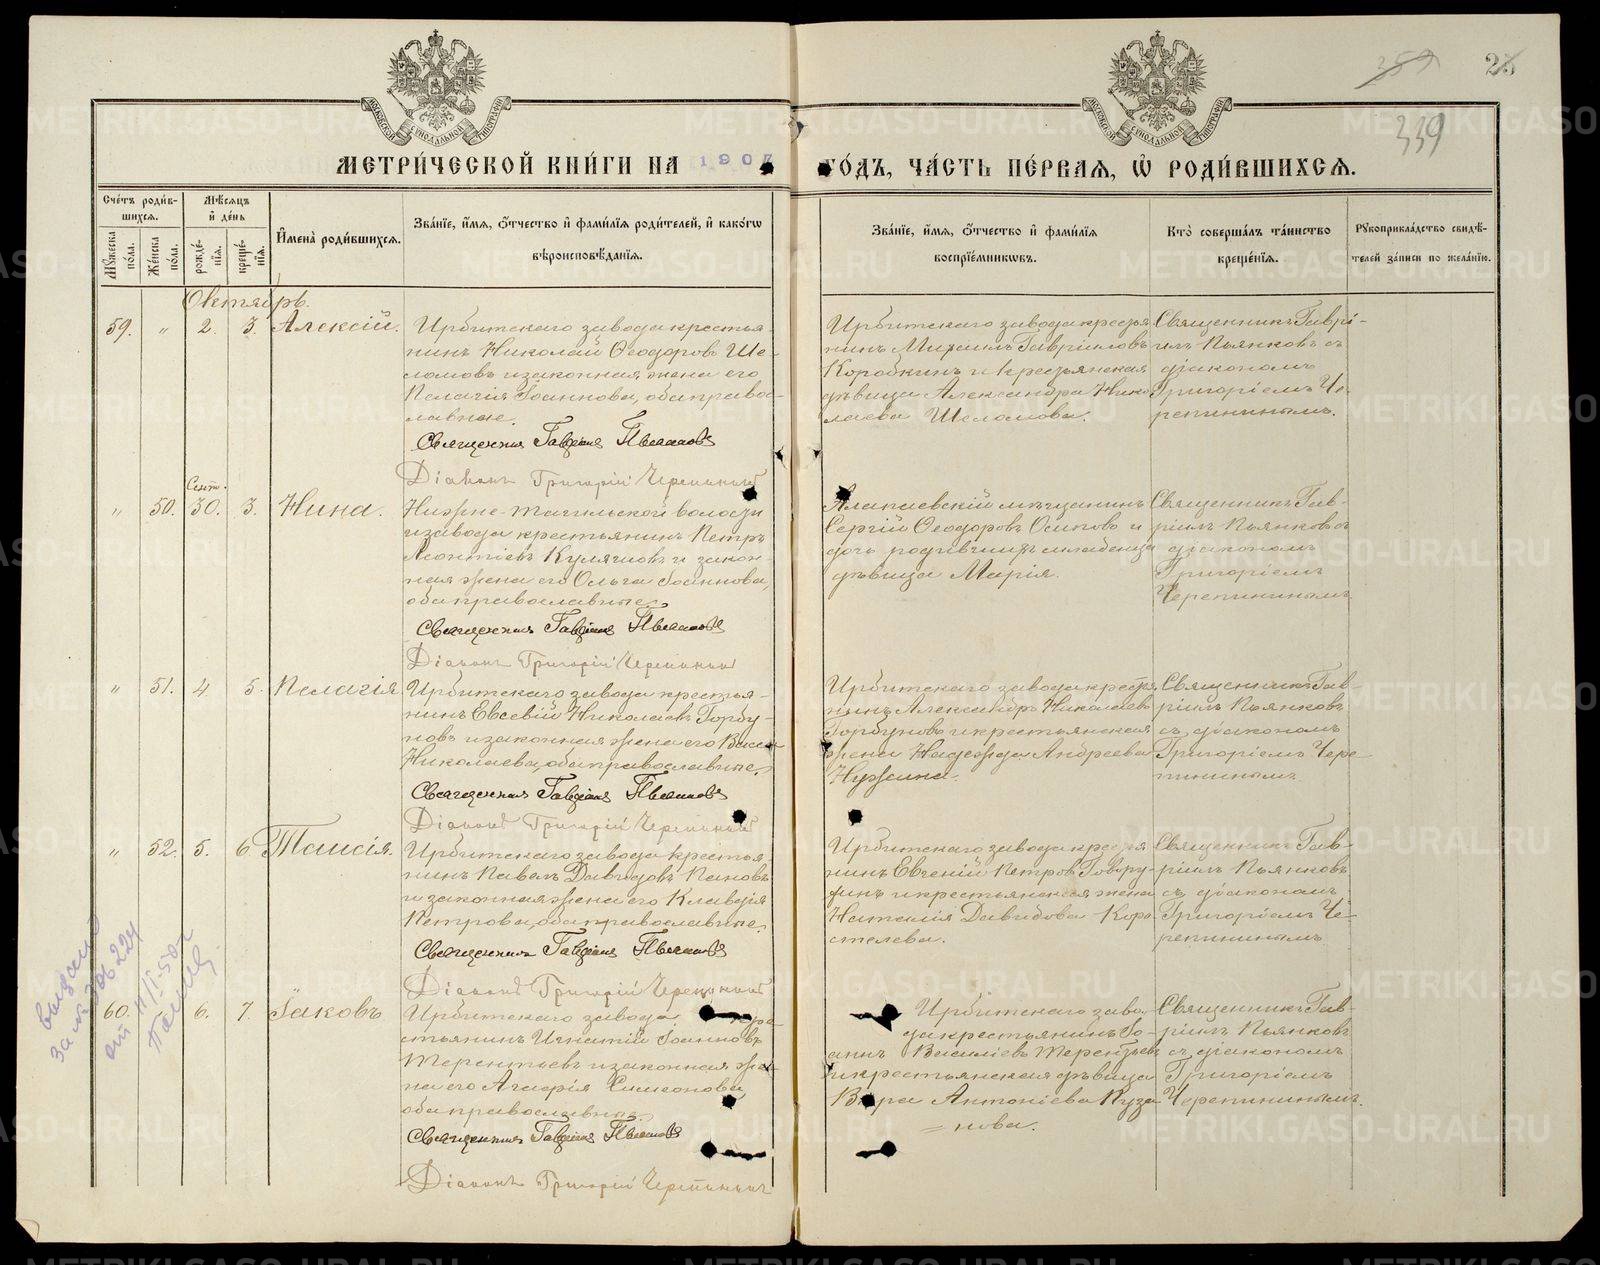 359 25
339
МЕТРИ́ЧЕСКОЙ КНИ́ГИ НА 1907 ГО́ДЪ, ЧА́СТЬ ПЕ́РВАЯ, Ѡ҆ РОДИ́ВШИХСѦ.
Сче́тъ роди́вшихсѧ.
Мꙋ́жеска по́ла.
Же́нска по́ла.
Мѣ́сяцъ и҆ де́нь
рожде́нїѧ.
креще́нїѧ.
И҆мена̀ роди́вшихсѧ.
Зва́нїе, и҆́мѧ, ѻ҆́тчество и҆ фами́лїѧ роди́телей, и҆ како́гѡ вѣроисповѣ́данїѧ.
Зва́нїе, и҆́мѧ, ѻ҆́тчество и҆ фами́лїѧ воспрїе́мникѡвъ.
Кто̀ соверша́лъ та́инство креще́нїѧ.
Рꙋкоприкла́дство свидѣ́телей за́писи по жела́нїю.
Октябрь.
59. " 2. 3. Алексій.
Ирбитскаго завода крестья-
нинъ Николай Ѳеодоровъ Ше-
ломовъ и законная жена его
Пелагія Іоаннова, оба православные.
Священникъ Гавріилъ Пьянковъ
Діаконъ Григорій Черепининъ
Ирбитскаго завода крестья
нинъ Михаилъ Гавріиловъ
Коробкинъ и крестьянская
дѣвица Александра Нико
лаева Шеломова.
Священникъ Гаврі-
илъ Пьянковъ съ
діакономъ
Григоріемъ Че-
репининымъ.
" 50. Сент. 30. 3. Нина.
Нижне-Тагильской волости
и завода крестьянинъ Петръ
Леонтіевъ и закон-
ная жена его Ольга Іоаннова,
оба православные.
Священникъ Гавріилъ Пьянковъ
Діаконъ Григорій Черепининъ
Алапаевскій мѣщанинъ
Сергій Ѳеодоровъ Осиповъ и
дочь родившихъ младенца
дѣвица Марія.
Священникъ Гав-
ріилъ Пьянковъ съ
діакономъ
Григоріемъ
Черепининымъ
" 51. 4. 5. Пелагія
Ирбитскаго завода крестья-
нинъ Евсевій Николаевъ Горбу-
новъ и законная жена его Васса
Николаева, оба православные.
Священникъ Гавріилъ Пьянковъ
Діаконъ Григорій Черепининъ
Ирбитскаго завода крестья
нинъ Александръ Николаевъ
Горбуновъ и крестьянская
жена Надежда Андреева
Священникъ Гав-
ріилъ Пьянковъ
съ діакономъ
Григоріемъ Чере
пининымъ
" 52. 5. 6. Таисія.
Ирбитскаго завода крестья-
нинъ Павелъ Давидовъ Пановъ
и законная жена его Клавдія
Петрова, оба православные.
Священникъ Гавріилъ Пьянковъ
Діаконъ Григорій Черепининъ
Ирбитскаго завода крестья
нинъ Евгеній Петровъ
и крестьянская жена
Наталія Давидова Коро
стелева.
Священникъ Гав-
ріилъ Пьянковъ
съ діакономъ
Григоріемъ Че-
репининымъ
60. 6. 7. Іаковъ
Ирбитскаго завода кре
стьянинъ Игнатій Іоанновъ
Терентьевъ и законная же-
на его Агафія Симеонова,
оба православные.
Священникъ Гавріилъ Пьянковъ
Діаконъ Григорій Черепининъ
Ирбитскаго заво-
да крестьянинъ Іо-
аннъ Василіевъ Терентьевъ
и крестьянская дѣвица
Вѣра Антоніева Куза
= нова.
Священникъ Гав-
ріилъ Пьянковъ
съ діакономъ
Григоріемъ
Черепининымъ.
METRIKI.GASO-URAL.RU